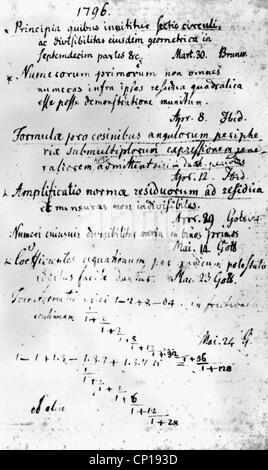 1796.
* Principia quibus innititur sectio circuli,
ac divisibilitas eiusdem geometrica in
septemdecim partes &c. Mart. 30. Brunsv.
* Numerorum primorum non omnes
numeros infra ipsos residua quadratica
esse posse demonstratione munitum.
Apr. 8. Ibid.
Formulae pro cosinibus angulorum periphe-
riae submultiplorum expressionem gene-
raliorem admittent
Apr. 12. Ibid.
* Amplificatio normae residuorum ad residua
et mensuras non indivisibiles.
Apr. 29 Gott
Numeri cuiusvis divisibilitas varia in binos primos
Mai. 14 Gott.
* Coefficientes aequationum per radicum potestates
additas facile dantur. Mai. 23 Gott.
Transformatio seriei 1-2+8-64.. in fractionem
continuam
1
1+2
1+2
1+8
1+12
1+32
1+56
1+128
Mai. 24 G.
1-1+1.3-1.3.7+1.3.7.15
1
1+1
1+2
1+6
1+12
1+28
et aliae
alamy
CP193D